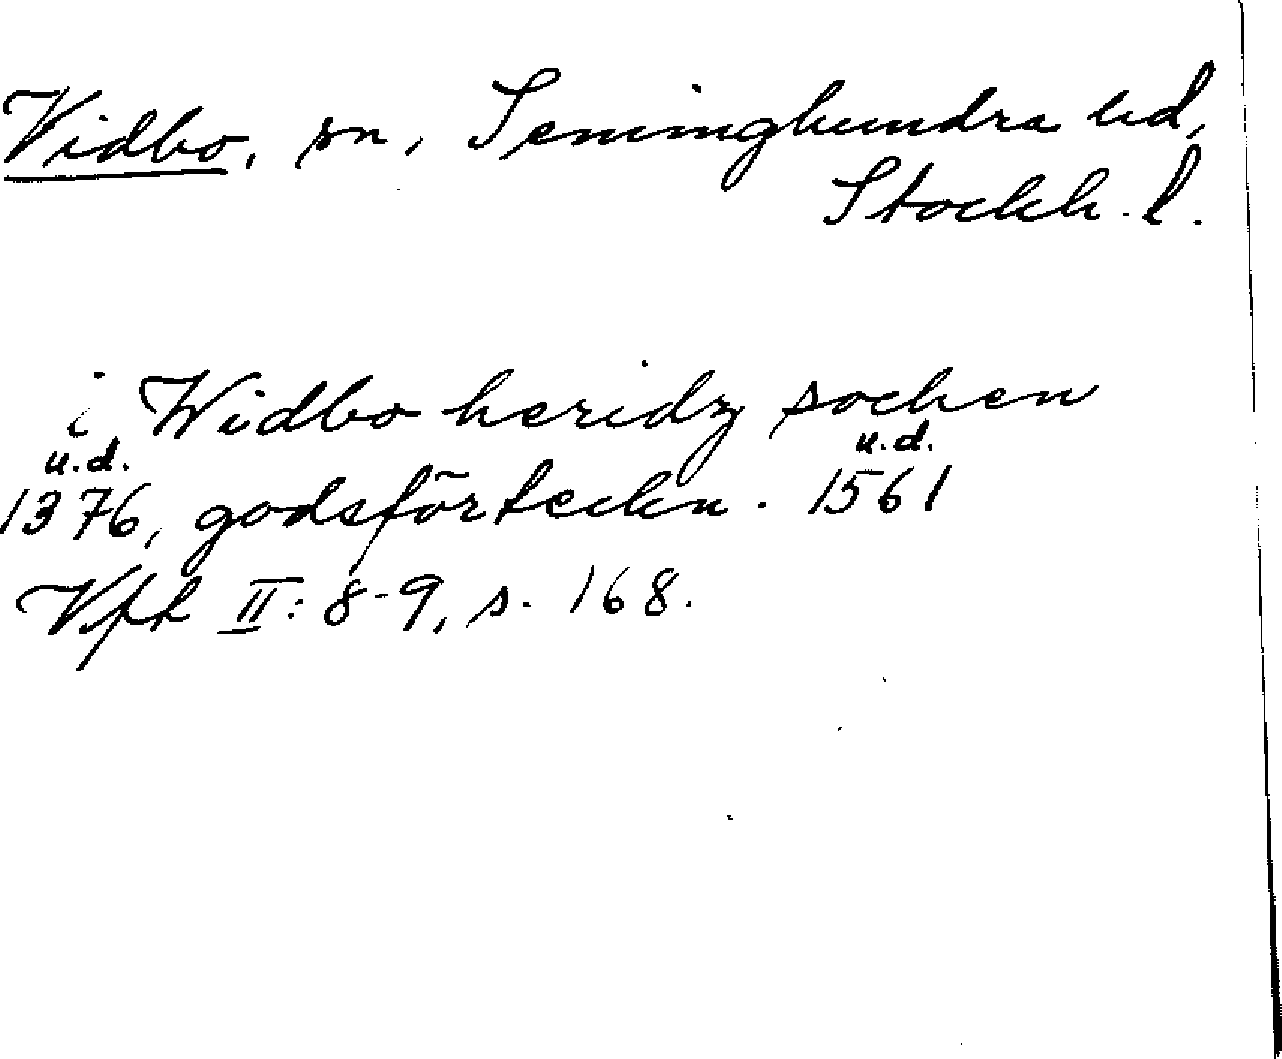 Vidbo, sn, Seminghundra hd,
Stockh. l.
i Widbo heridz sochen
u.d. u.d.
1376, godsförteckn. 1561
Vfh II: 8-9, s. 168.